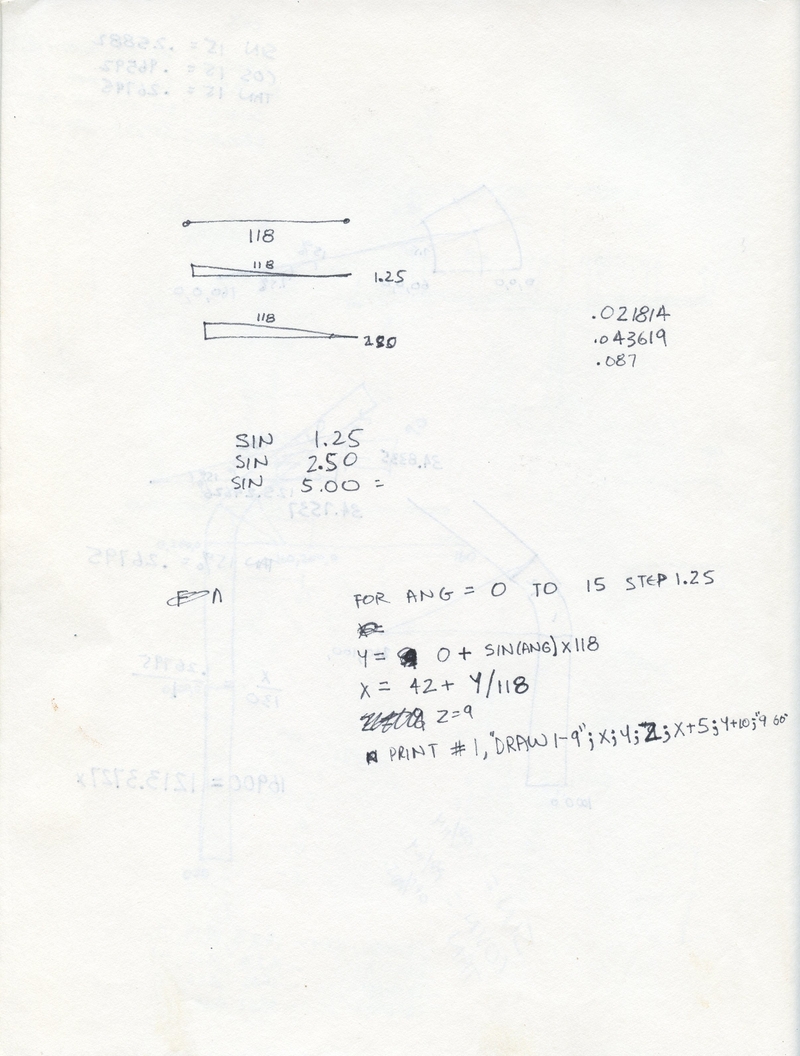 118
118
1.25
118
.021814
.043619
.087
SIN 1.25
SIN 2.50
SIN 5.00 =
FOR ANG = 0 TO 15 STEP 1.25
Y = 0 + SIN(ANG) X 118
X = 42 + Y/118
Z=9
PRINT #1, "DRAW 1-9"; X; Y; Z; X+5; Y+10; "9 60